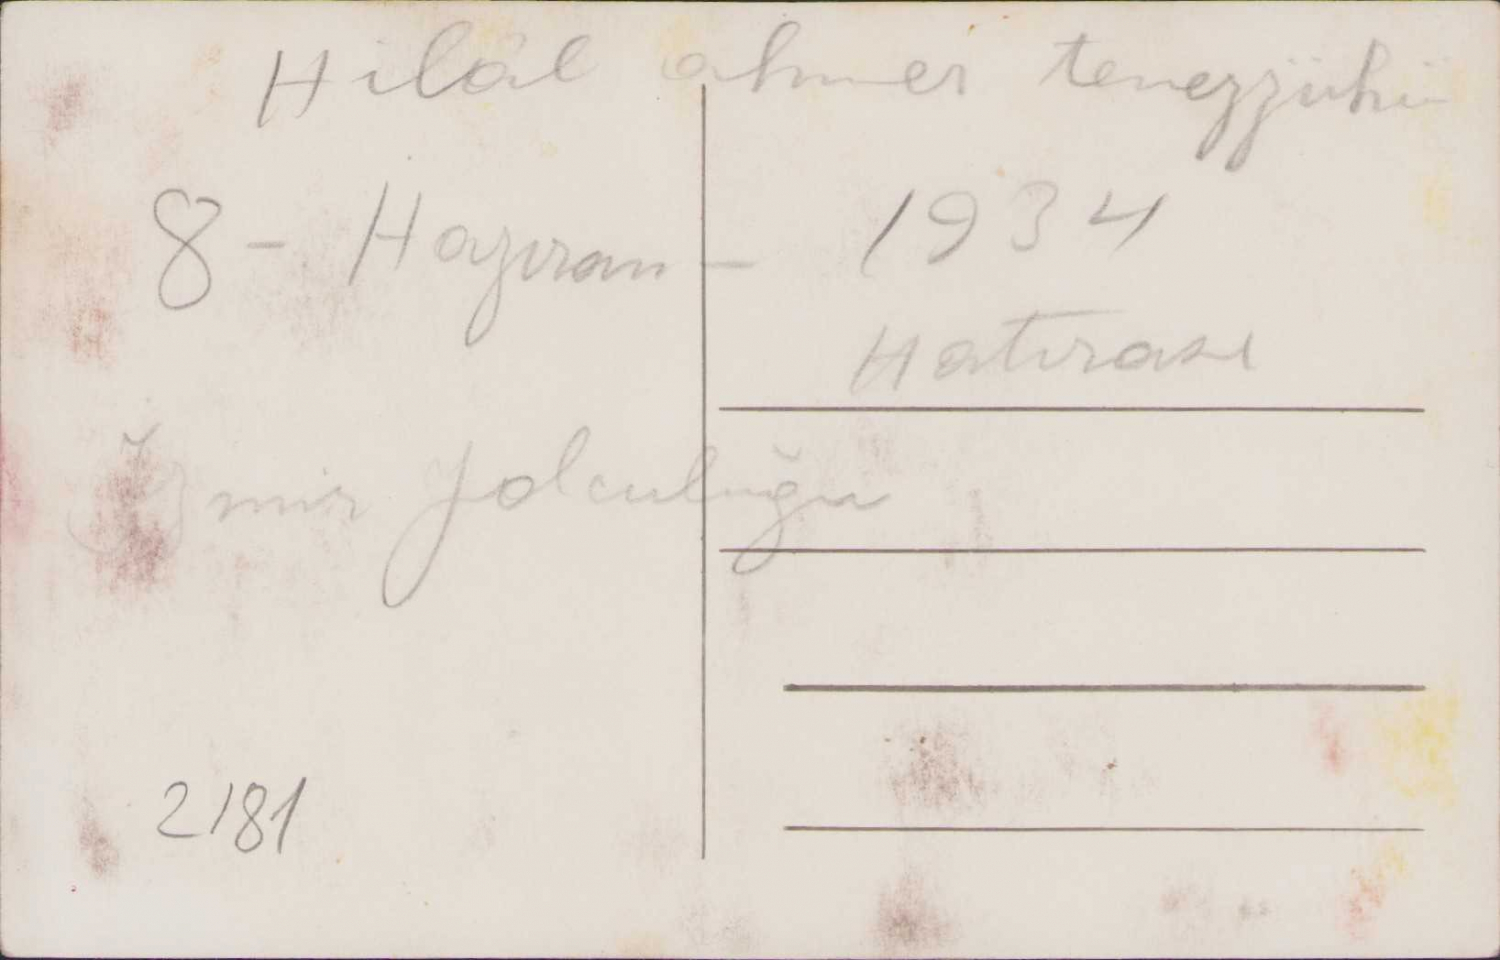 Hilâl ahmer tenezzühü
8 - Haziran - 1934
Hatırası
İzmir Yolculuğu
2181